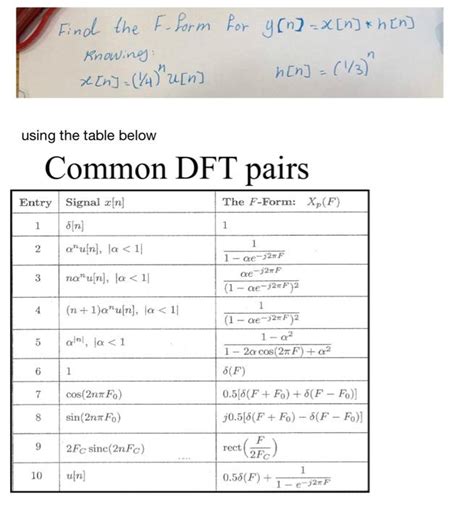 Find the F-form for y[n] = x[n] * h[n]
Knowing:
x[n] = (1/4)^n u[n] h[n] = (1/3)^n
using the table below
Common DFT pairs
Entry Signal x[n] The F-Form: X_p(F)
1 δ[n] 1
2 α^n u[n], |α < 1| 1 / (1 − αe^{−j2πF})
3 nα^n u[n], |α < 1| αe^{−j2πF} / (1 − αe^{−j2πF})^2
4 (n + 1)α^n u[n], |α < 1| 1 / (1 − αe^{−j2πF})^2
5 α^{|n|}, |α < 1 (1 − α^2) / (1 − 2α cos(2πF) + α^2)
6 1 δ(F)
7 cos(2nπF_0) 0.5[δ(F + F_0) + δ(F − F_0)]
8 sin(2nπF_0) j0.5[δ(F + F_0) − δ(F − F_0)]
9 2F_C sinc(2nF_C) rect(F / 2F_C)
10 u[n] 0.5δ(F) + 1 / (1 − e^{−j2πF})